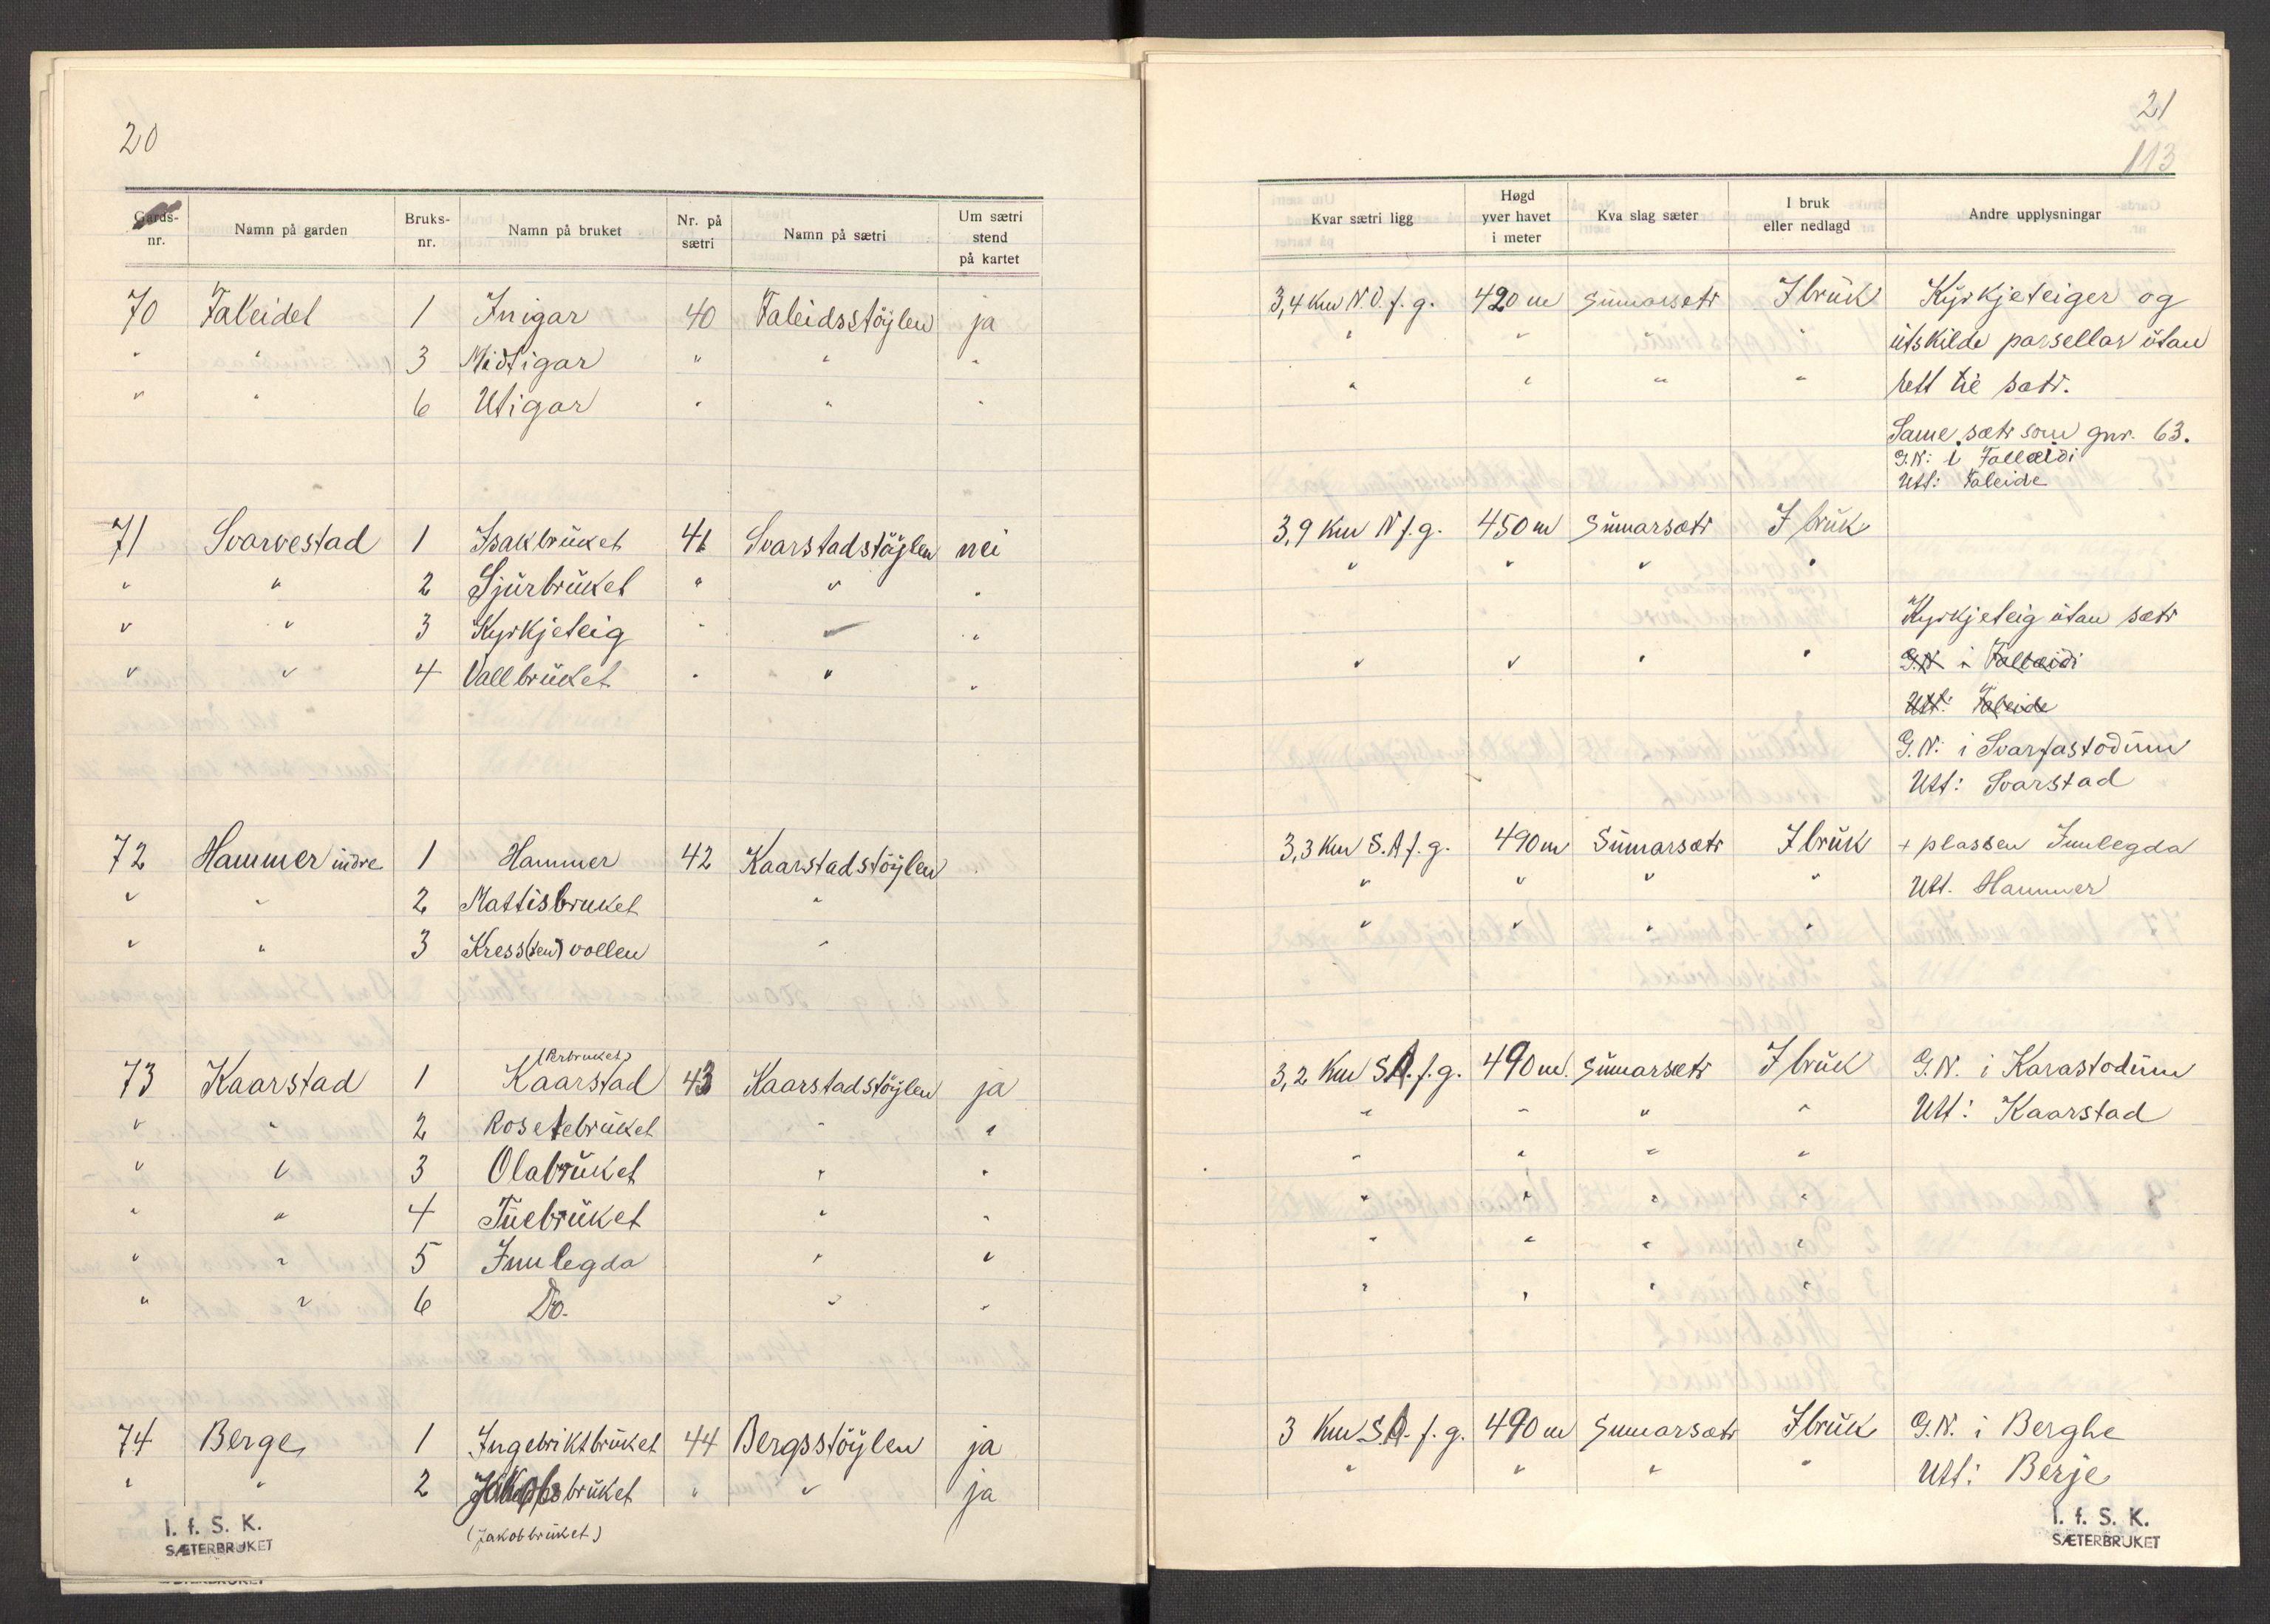 20
Gards-nr. Namn på garden Bruks-nr. Namn på bruket Nr. på sætri Namn på sætri Um sætri stend på kartet
70 Faleidet 1 Inigar 40 Faleidsstöylen ja
" " 3 Midtigar " " "
" " 6 Utigar " " "
71 Svarvestad 1 Isakbrŭket 41 Svarstadstöylen nei
" " 2 Sjŭrbrŭket " " "
" " 3 Kyrkjeteig " — "
" " 4 Vallbrŭket " " "
72 Hammer indre 1 Hammer 42 Kaarstadstöylen
" " 2 Mattisbruket "
" " 3 Kress(ten)vollen "
(Perbruket)
73 Kaarstad 1 Kaarstad 43 Kaarstadstöylen ja
" " 2 Rosetebrŭket " "
" " 3 Olabrŭket " "
" " 4 Tŭebrŭket " "
" " 5 Innlegda " "
" " 6 Do. " "
74 Berge 1 Ingebriktbrŭket 44 Bergsstöylen ja
" " 2 Jakobsbrŭket " " ja
(Jakobbrŭket)
I. f. S. K.
SÆTERBRUKET
21
113
Kvar sætri ligg Høgd yver havet i meter Kva slag sæter I bruk eller nedlagd Andre upplysningar
3,4 Km N.O. f. g. 420 m Sŭmarsætr I brŭk Kyrkjeteiger og
" " " ŭtskilde parsellar ŭtan
" " " " rett til sætr.
Same sætr som gnr. 63.
G.N: i Fallæidi
Utt: Faleide
3,9 Km N f. g. 450 m Sŭmarsætr I brŭk
" " " "
Kyrkjeteig ŭtan sætr
" " " " G.N. i Fallæidi
Utt: Faleide
G.N: i Svarfastodŭm
Utt: Svarstad
3,3 Km S.A f. g. 490 m Sŭmarsætr I brŭk + plassen Innlegda
" " " " Utt. Hammer
" " " "
3,2 Km S.A. f. g. 490 m. Sŭmarsætr I brŭk G.N. i Karastodŭm
" " " " Utt: Kaarstad
" " " "
" " " "
" " " "
" " " "
3 Km S.A. f. g. 490 m Sumarsætr I brŭk G.N. i Berghe
" " " " Utt: Berje
I. f. S. K.
SÆTERBRUKET